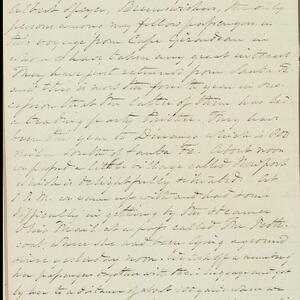 Albert Speyer, the only
persons among my fellow passengers in
this voyage from Cape Girardeau in
whom I have taken any great interest
They have just returned from Santa Fe
and this is now the fourth year in
that the latter of them has led
a trading party thither. They have
been this year to Durango which is 600
miles south of Santa Fe. About noon
we passed a little village called Newport
which is delightfully situated. At
1 P.M. we came up with and had some
difficulty in getting by the steamer
at a pass called the Petti-
coat, where she had been lying aground
since yesterday noon. We took a number of
her passengers together with their luggage and got
by her to a distance of about 100 yards when we